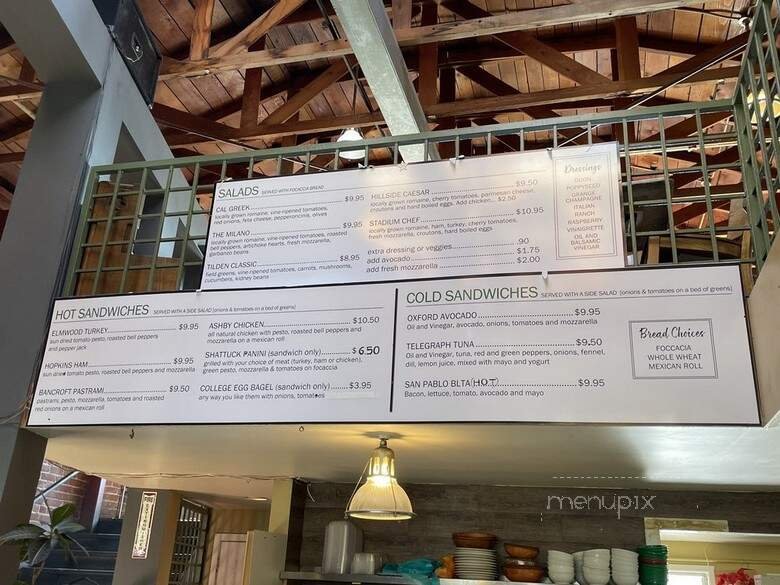 SALADS SERVED WITH FOCACCIA BREAD
CAL GREEK $9.95
locally grown romaine, vine-ripened tomatoes,
red onions, feta cheese, pepperoncinis, olives
THE MILANO $9.95
locally grown romaine, vine-ripened tomatoes, roasted
bell peppers, artichoke hearts, fresh mozzarella,
garbanzo beans
TILDEN CLASSIC $8.95
field greens, vine-ripened tomatoes, carrots, mushrooms,
cucumbers, kidney beans
HILLSIDE CAESAR $9.50
locally grown romaine, cherry tomatoes, parmesan cheese,
croutons and hard boiled eggs. Add chicken... $2.50
STADIUM CHEF $10.95
locally grown romaine, ham, turkey, cherry tomatoes,
fresh mozzarella, croutons, hard boiled eggs
extra dressing or veggies .90
add avocado $1.75
add fresh mozzarella $2.00
Dressings
DIJON
POPPYSEED
ORANGE
CHAMPAGNE
ITALIAN
RANCH
RASPBERRY
VINAIGRETTE
OIL AND
BALSAMIC
VINEGAR
HOT SANDWICHES SERVED WITH A SIDE SALAD (onions & tomatoes on a bed of greens)
ELMWOOD TURKEY $9.95
sun dried tomato pesto, roasted bell peppers
and pepper jack
HOPKINS HAM $9.95
sun dried tomato pesto, roasted bell peppers and mozzarella
BANCROFT PASTRAMI $9.50
pastrami, pesto, mozzarella, tomatoes and roasted
red onions on a mexican roll
ASHBY CHICKEN $10.50
all natural chicken with pesto, roasted bell peppers and
mozzarella on a mexican roll
SHATTUCK PANINI (sandwich only) $6.50
grilled with your choice of meat (turkey, ham or chicken),
green pesto, mozzarella & tomatoes on focaccia
COLLEGE EGG BAGEL (sandwich only) $3.95
any way you like them with onions, tomatoes
COLD SANDWICHES SERVED WITH A SIDE SALAD (onions & tomatoes on a bed of greens)
OXFORD AVOCADO $9.95
Oil and Vinegar, avocado, onions, tomatoes and mozzarella
TELEGRAPH TUNA $9.50
Oil and Vinegar, tuna, red and green peppers, onions, fennel,
dill, lemon juice, mixed with mayo and yogurt
SAN PABLO BLTA (HOT) $9.95
Bacon, lettuce, tomato, avocado and mayo
Bread Choices
FOCCACIA
WHOLE WHEAT
MEXICAN ROLL
menupix